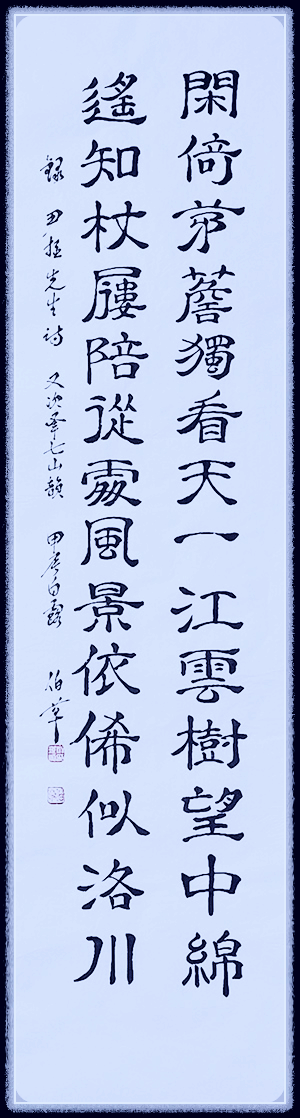 閑倚茅簷獨看天一江雲樹望中綿
遙知杖屨陪從處風景依俙似洛川
錄 田拯先生詩 又次峯七山韻 甲辰白露 伯葦